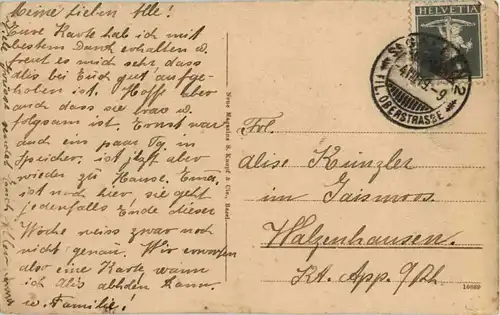 Meine lieben Alle!
Eure Karte hab ich mit
bestem Dank erhalten u.
freut es mich sehr dass
alis bei Euch gut aufge-
hoben ist. Hoffe aber
auch dass sie brav u.
folgsam ist. Ernst war
auch ein paar Tg. in
Speicher. ist jetzt aber
wieder zu Hause. Emma
ist noch hier sie geht
jedenfalls Ende dieser
Woche weiss zwar noch
nicht genau. Wir erwarten
also eine Karte, wann
ich Alis abholen kann.
u. Familie!
Neue Magazine S. Kumpf & Cie., Basel.
HELVETIA
OBERSTRASSE
Frl.
Alise Künzler
im Gaismoos
Walzenhausen.
Kt. App. A/Rh.